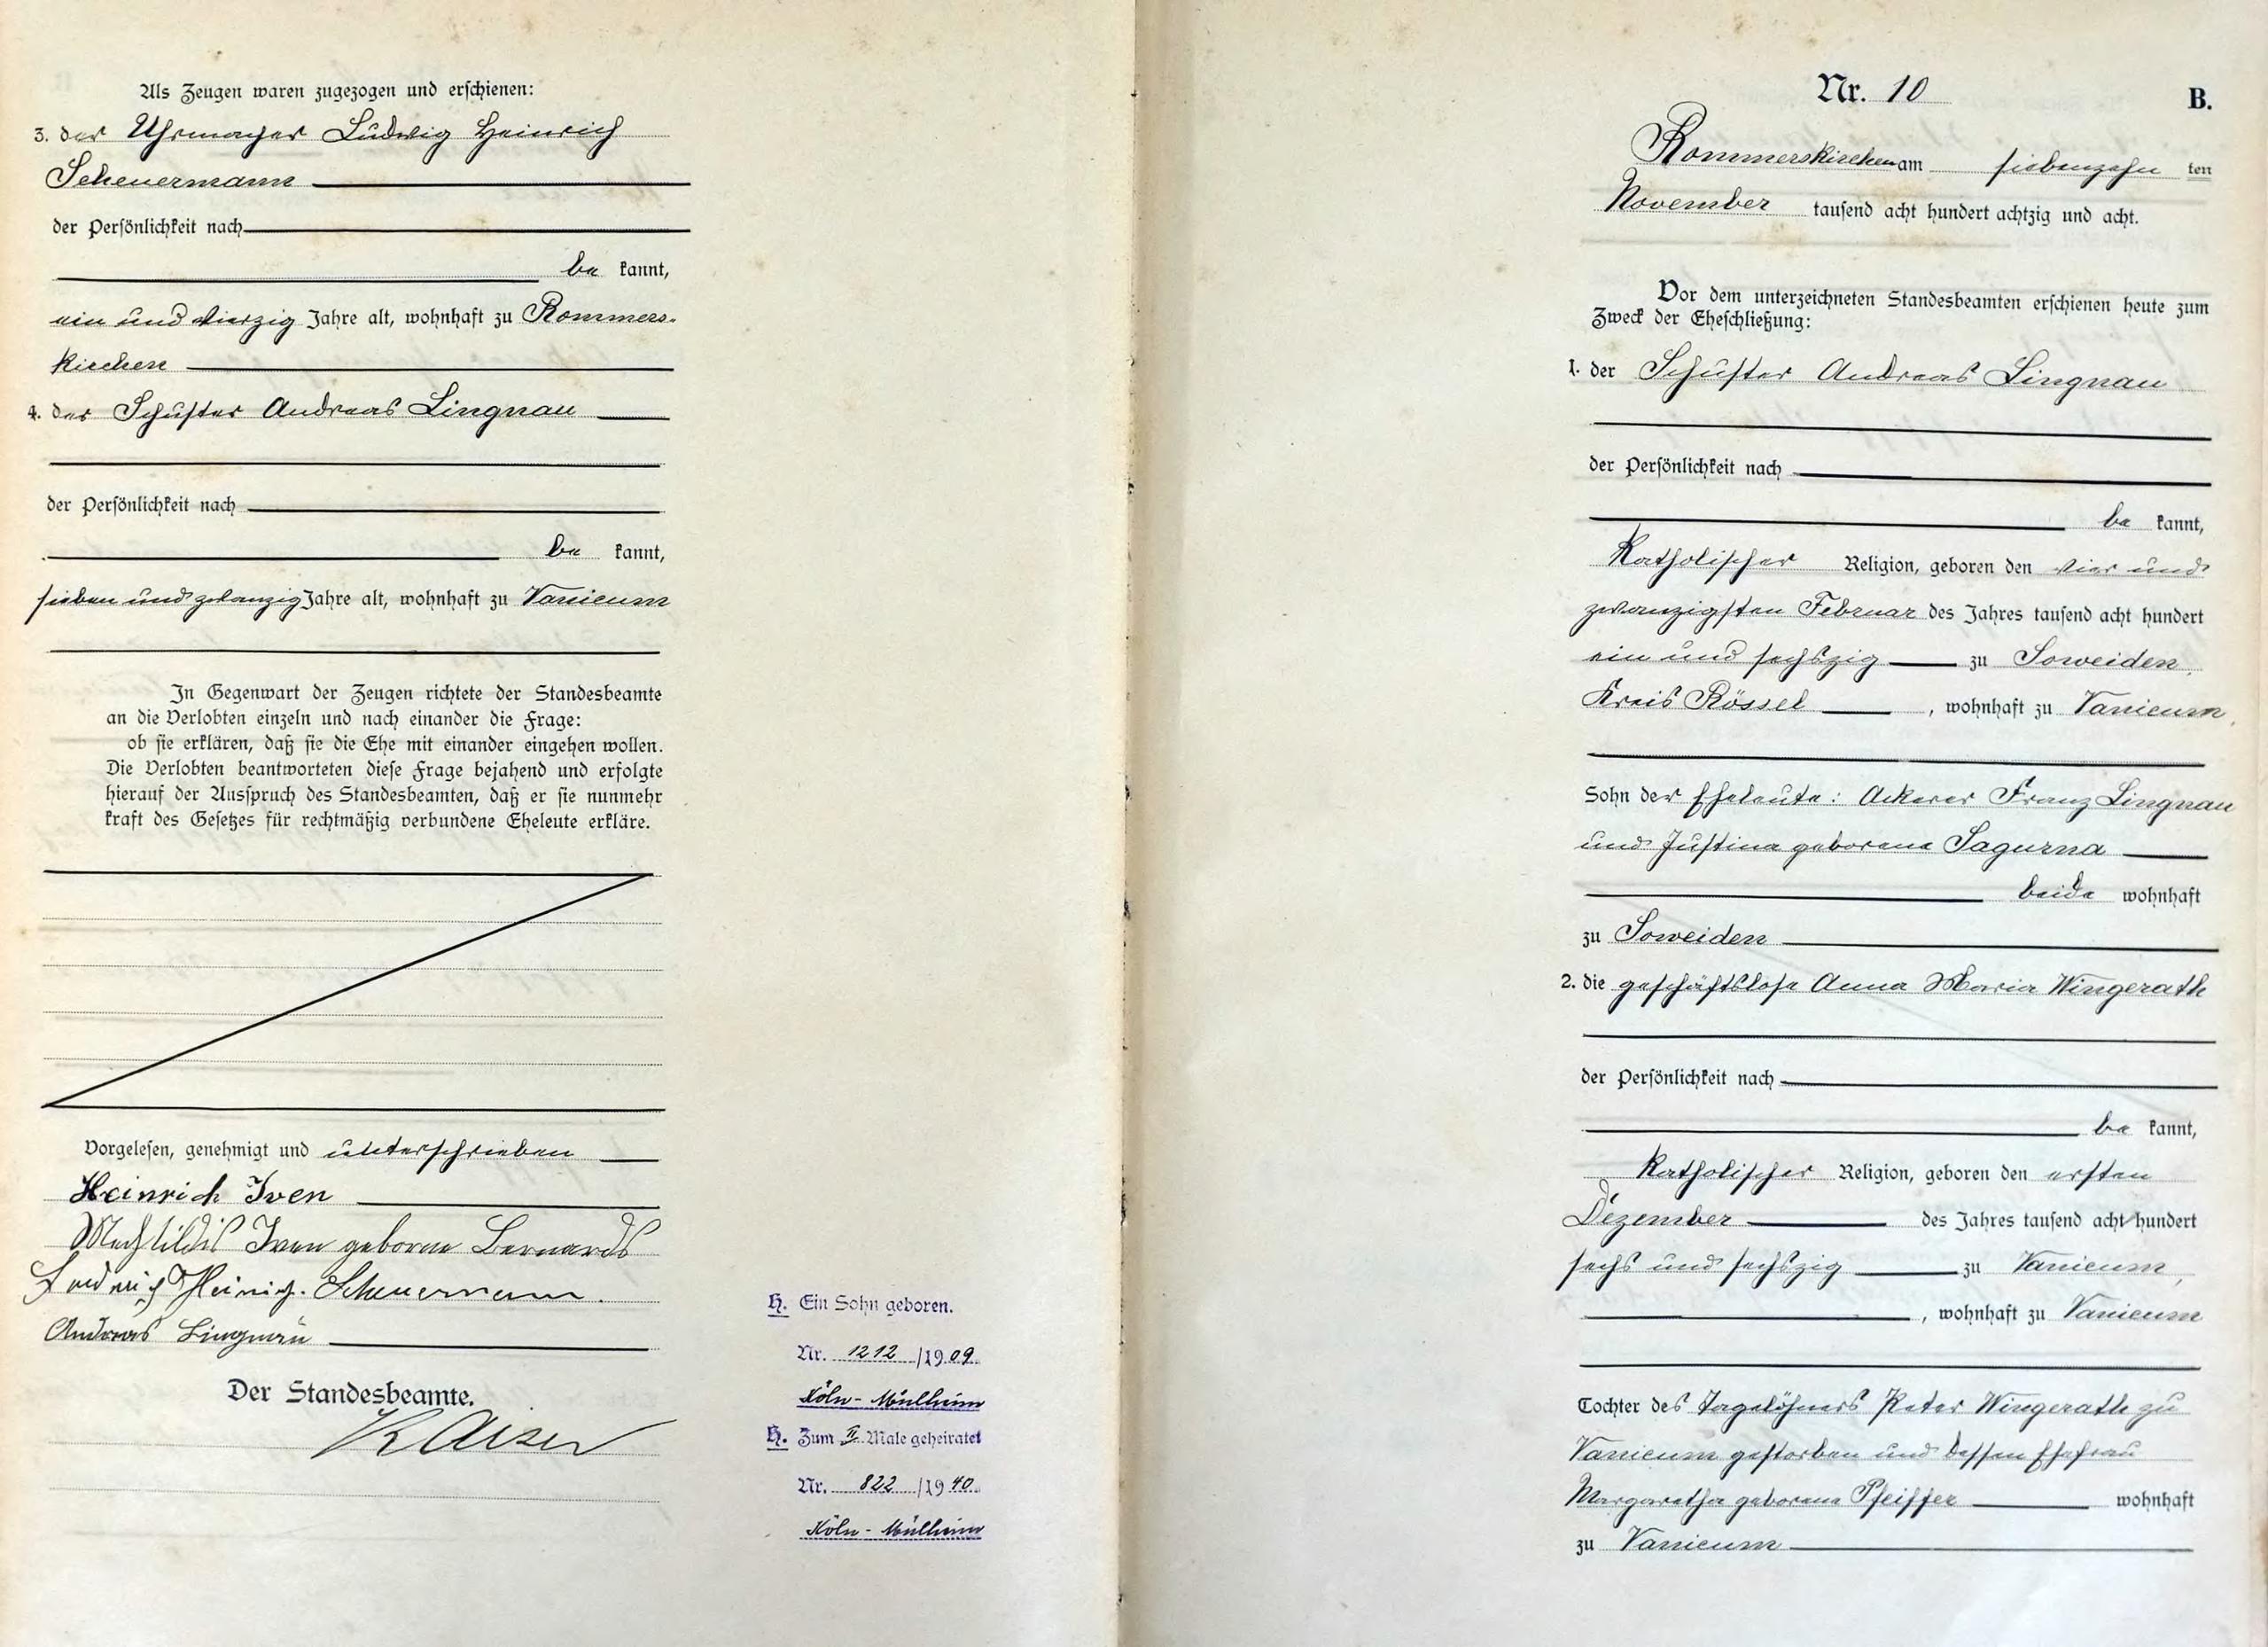 Als Zeugen waren zugezogen und erschienen:
3. der Uhrmacher Ludwig Heinrich
Scheuermann
der Persönlichkeit nach
be kannt,
ein und vierzig Jahre alt, wohnhaft zu Rommers-
kirchen
4. der Schuster Andreas Lingnau
der Persönlichkeit nach
be kannt,
sieben und zwanzig Jahre alt, wohnhaft zu Vanicum
In Gegenwart der Zeugen richtete der Standesbeamte
an die Verlobten einzeln und nach einander die Frage:
ob sie erklären, daß sie die Ehe mit einander eingehen wollen.
Die Verlobten beantworteten diese Frage bejahend und erfolgte
hierauf der Ausspruch des Standesbeamten, daß er sie nunmehr
kraft des Gesetzes für rechtmäßig verbundene Eheleute erkläre.
Vorgelesen, genehmigt und unterschrieben
Heinrich Iven
Mechtildis Iven geborne Bernards
Ludwig Heinrich Scheuermann.
Andreas Lingnau
Der Standesbeamte.
Kaiser
H. Ein Sohn geboren.
Nr. 1212 /1909.
Köln-Mülheim
H. Zum II. Male geheiratet
Nr. 822 /1940.
Köln-Mülheim
Nr. 10
B.
Rommerskirchen am siebenzehn ten
November tausend acht hundert achtzig und acht.
Vor dem unterzeichneten Standesbeamten erschienen heute zum
Zweck der Eheschließung:
1. der Schuster Andreas Lingnau
der Persönlichkeit nach
be kannt,
katholischer Religion, geboren den vier und
zwanzigsten Februar des Jahres tausend acht hundert
ein und sechszig zu Soweiden,
Kreis Rössel, wohnhaft zu Vanicum,
Sohn der Eheleute: Ackerer Franz Lingnau
und Justina geborene Sagurna
beide wohnhaft
zu Soweiden
2. die geschäftslose Anna Maria Wingerath
der Persönlichkeit nach
be kannt,
katholischer Religion, geboren den ersten
Dezember des Jahres tausend acht hundert
sechs und sechszig zu Vanicum,
, wohnhaft zu Vanicum
Tochter des Tagelöhners Peter Wingerath zu
Vanicum gestorben und dessen Ehefrau
Margaretha geborene Pfeiffer wohnhaft
zu Vanicum